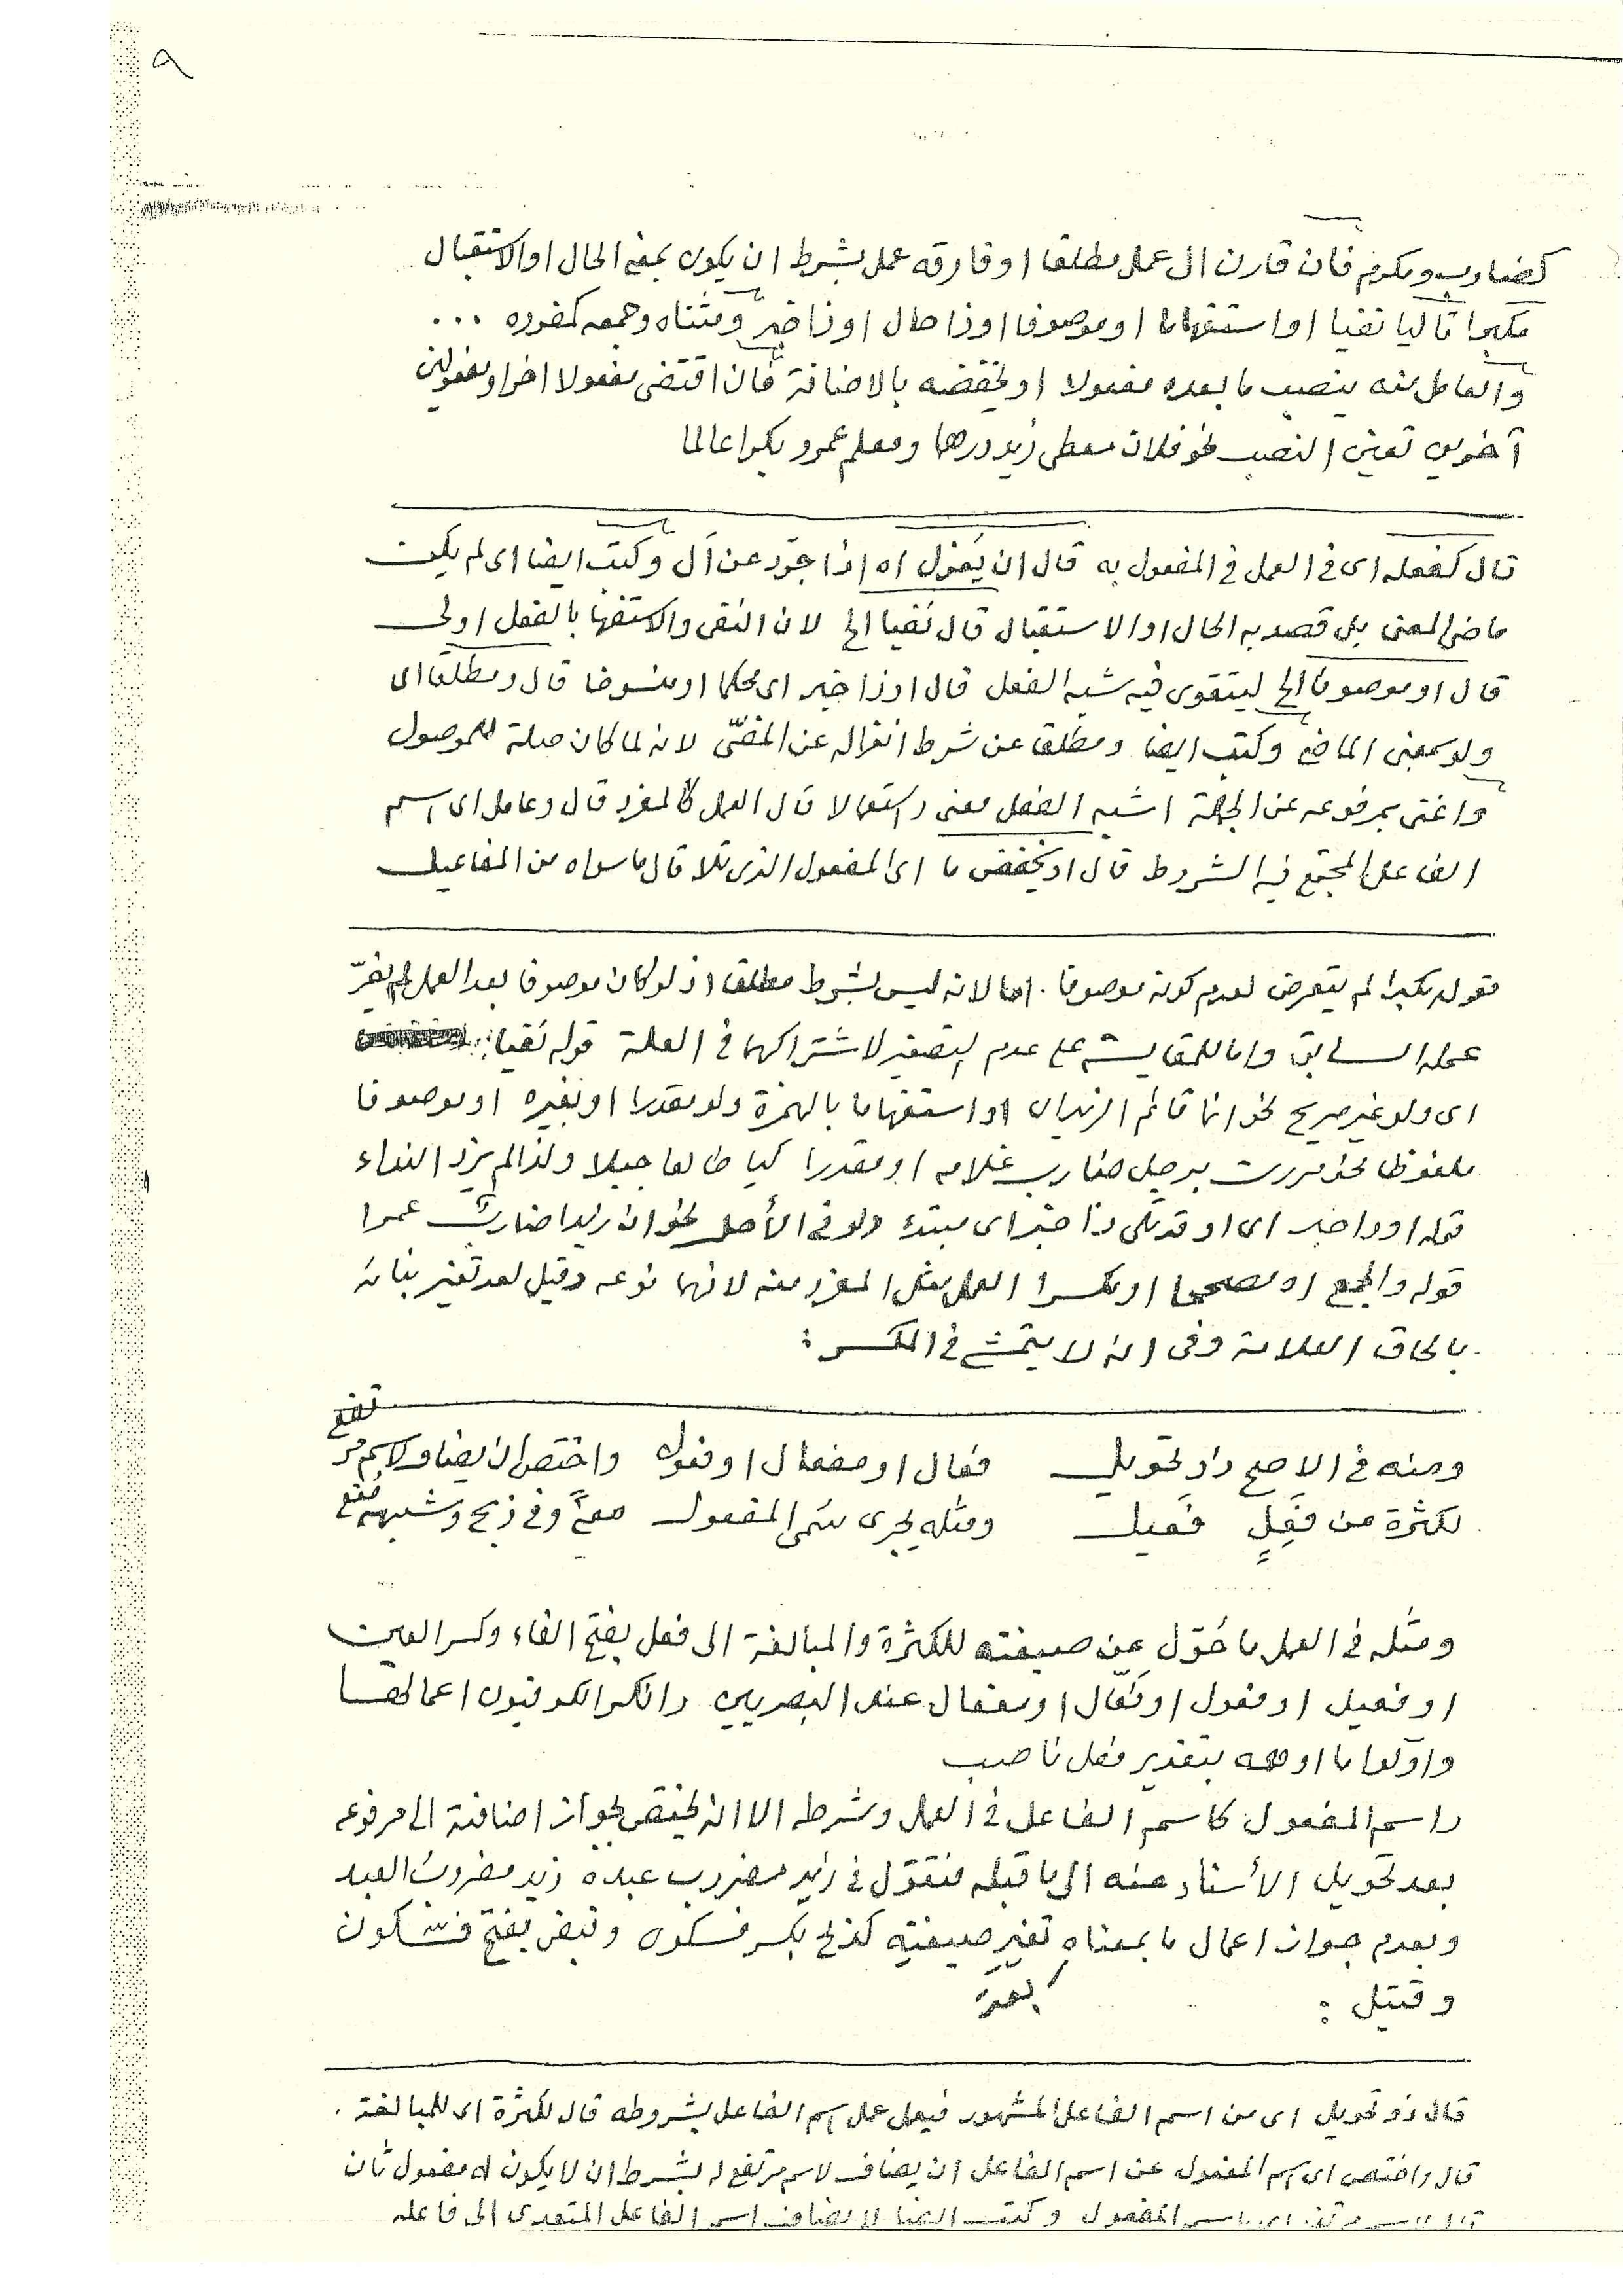 ٩
كضارب ومكرم فان قارن ال عمل مطلقا او فارقه عمل بشرط ان يكون بمعنى الحال او الاستقبال
مكبرا تاليا نفيا او استفهاما او موصوفا او ذا حال او ذا خبر ومثناه وجمعه كمفرده ...
والعامل منه ينصب ما بعده مفعولا او يخفضه بالاضافة فان اقتضى مفعولا اخر او مفعولين
آخرين تعين النصب نحو فلان معطى زيد درهما ومعلم عمرو بكرا عالما
قال كفعله اى فى العمل فى المفعول به قال ان يعزل اه اذا جرّد عن أل وكتب ايضا اى لم يكن
ماضى المعنى بل قصد به الحال او الاستقبال قال نفيا الخ لان النفى والاستفها بالفعل اولى
قال او موصوفا الخ ليتقوى فيه شبه الفعل قال او ذا خبر اى محكما او منسوخا قال ومطلقا اى
ولو بمعنى الماضى وكتب ايضا ومطلقا عن شرط انعزاله عن المضىّ لانه لما كان صلة للموصول
واغنى بمرفوعه عن الجملة اشبه الفعل معنى واستعمالا قال العمل كالمفرد قال وعامل اى اسم
الفاعل المجتمع فيه الشروط قال او يخفض ما اى المفعول الذى تلا قال ما سواه من المفاعيل
قوله مكبرا لم يتعرض لعدم كونه موصوفا . اما لانه ليس بشرط مطلقا اذ لو كان موصوفا بعد العمل لم يغيّر
عمله السابق واما للمقايسة على عدم التصغير لاشتراكهما فى العلة قوله نفيا
اى ولو غير صريح نحو انما قائم الزيدان او استفهاما بالهمزة ولو مقدرا او بغيره او موصوفا
ملفوظا نحو مررت برجل ضارب غلامه او مقدرا كيا طالعا جبلا ولذا لم يزد النداء
قوله او ذا خبر اى او قد تلى ذا خبر اى مبتدء ولو فى الأصل نحو ان زيدا ضارب عمرا
قوله والجمع اه مصححا او مكسرا العمل مثل المفرد منه لانهما نوعه وقيل لعد تغير بنائه
بالحاق العلامة وفى انه لا يتمشى فى المكسر :
ومنه فى الاصح ذو تحويل فعال او مفعال او فعول واختص ان يضاف لاسم مرتفع
لكثرة من فَعِلٍ فعيل ومثله يجرى سمى المفعول معنًى وفى ذبح وشبهه منع
ومثله فى العمل ما حُوّل عن صيغته للكثرة والمبالغة الى فعل بفتح الفاء وكسر العين
او فعيل او فعول او فَعّال او مفعال عند البصريين وانكر الكوفيون اعمالها
واوّلوا ما اوهمه بتقدير فعل ناصب
واسم المفعول كاسم الفاعل فى العمل وشرطه الا انه يختص بجواز اضافته الى مرفوعه
بعد تحويل الأسناد عنه الى ما قبله فتقول فى زيد مضروب عبده زيد مضروب العبد
وبعدم جواز اعمال ما بمعناه تغير صيغته كذبح بكسر فسكون وقبض بفتح فسكون
وقتيل :
قال ذو تحويل اى من اسم الفاعل المشهور فيعمل عمل اسم الفاعل بشروطه قال لكثرة اى للمبالغة .
قال واختص اى اسم المفعول عن اسم الفاعل ان يضاف لاسم مرتفع له بشرط ان لا يكون له مفعول ثان
قال لاسم مرتفع اى باسم المفعول وكتب ايضا لا يضاف اسم الفاعل المتعدى الى فاعله